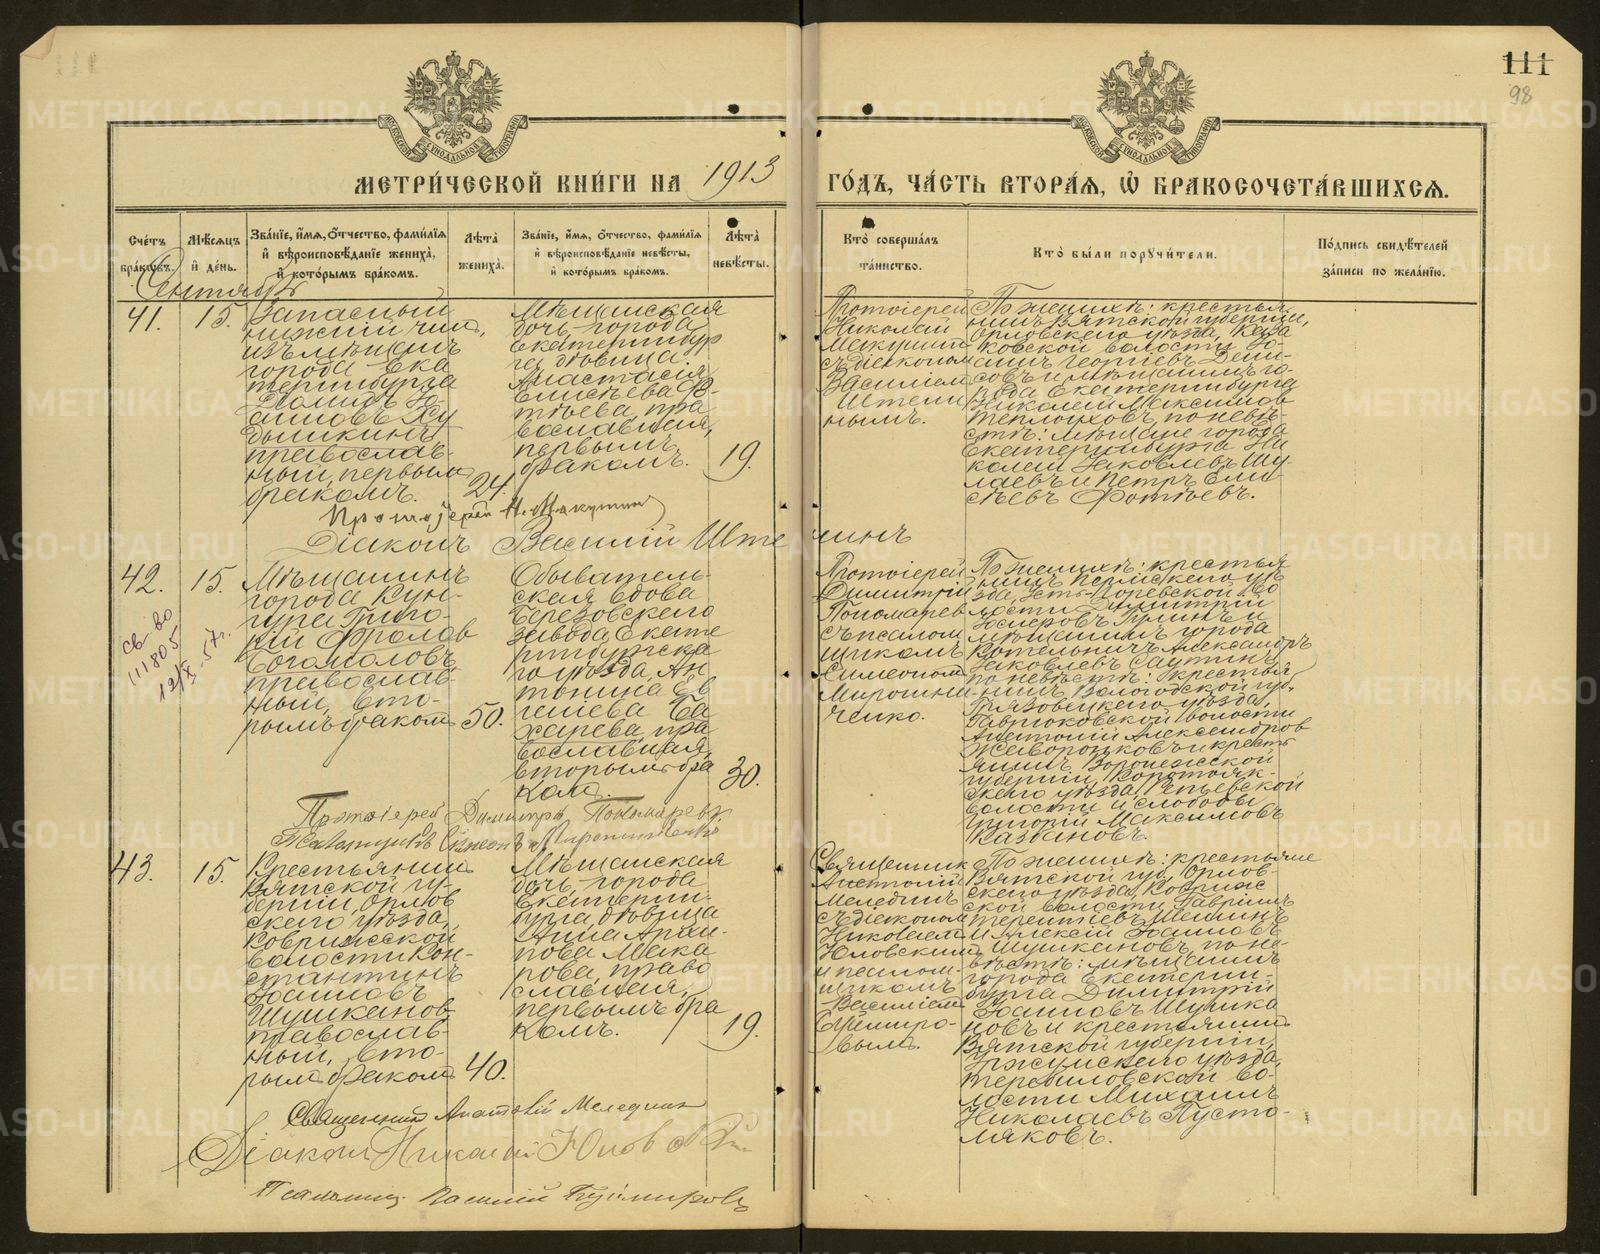 111
98
МЕТРИЧЕСКОЙ КНИГИ НА 1913 ГОДЪ, ЧАСТЬ ВТОРАЯ, Ѡ БРАКОСОЧЕТАВШИХСЯ.
Счетъ браковъ.
Мѣсяцъ и день.
Званіе, имя, отчество, фамилія и вѣроисповѣданіе жениха, и которымъ бракомъ.
Лѣта жениха.
Званіе, имя, отчество, фамилія и вѣроисповѣданіе невѣсты, и которымъ бракомъ.
Лѣта невѣсты.
Кто совершалъ таинство.
Кто были поручители.
Подпись свидѣтелей записи по желанію.
Сентябрь
41.
15.
Запасный
нижній чинъ,
изъ мѣщанъ
города Ека
теринбурга
Іо
анновъ Ху
дышкинъ,
православ-
ный, первымъ
бракомъ.
24.
Мѣщанская
дочь города
Екатеринбур
га дѣвица
Анастасія
Елисѣева Фо
тѣева, пра
вославная,
первымъ
бракомъ.
19.
Протоіерей
Николай
Макушинъ
съ діакономъ
Василіемъ
Штели
нымъ.
По женихѣ: крестья
нинъ Вятской губерніи,
Орловскаго уѣзда, Каза
ковской волости Іо
аннъ Георгіевъ Дени-
совъ и мѣщанинъ го-
рода Екатеринбурга
Николай Максимовъ
Теплоуховъ, по невѣ-
стѣ: мѣщане города
Екатеринбурга Ни
колай Іаковлевъ Шу-
лаевъ и Петръ Ели
сѣевъ Фотѣевъ.
Протоіерей Н. Макушинъ
Діаконъ Василій Штелинъ
42.
15.
св-во
111805
12/X 57г.
Мѣщанинъ
города Кун-
гура Григо-
рій Фроловъ
Богомоловъ,
православ-
ный, вто-
рымъ бракомъ
50.
Обыватель-
ская вдова
Березовскаго
завода, Екате
ринбургска
го уѣзда, Ан
тонина Ев
геніева Ба
харева, пра
вославная,
вторымъ бра
комъ.
30.
Протоіерей
Димитрій
Пономаревъ
съ псалом
щикомъ
Симеономъ
Мирошни-
ченко.
По женихѣ: крестья
нинъ Пермскаго уѣ
зда, Усть-Горевской во
лости Димитрій
и
мѣщанинъ города
Котельничъ Александръ
Іаковлевъ Саутинъ,
по невѣстѣ: крестья
нинъ Вологодской губ.
Грязовецкаго уѣзда,
Гавриковской волости
Анатолій Александровъ
Жаворонковъ и кресть
янинъ Воронежской
губерніи, Коротояк-
скаго уѣзда, Репьевской
волости и слободы
Григорій Максимовъ
Казбановъ.
Протоіерей Димитрій Пономаревъ
Псаломщикъ Симеонъ Мирошниченко
43.
15.
Крестьянинъ
Вятской гу-
берніи, Орлов
скаго уѣзда,
Коврижской
волости Кон-
стантинъ
Іоанновъ
Шушкановъ
православ-
ный, вто-
рымъ бракомъ
40.
Мѣщанская
дочь города
Екатерин-
бурга дѣвица
Анна Агап-
пова Мака
рова, право
славная,
первымъ бра
комъ.
19.
Священникъ
Анатолій
Меледин
съ діакономъ
Николаемъ
Юловскимъ
и псалом-
щикомъ
Василіемъ
По женихѣ: крестьяне
Вятской губ., Орлов-
скаго уѣзда, Коврижс
кой волости Гавріилъ
Терентіевъ Шешинъ
и Алексій Іоанновъ
Шушкановъ, по не-
вѣстѣ: мѣщанинъ
города Екатерин-
бурга Димитрій
Іоанновъ Шушка
новъ и крестьянинъ
Вятской губерніи,
Уржумскаго уѣзда,
волости Михаилъ
Николаевъ Пусто-
ляковъ.
Священникъ Анатолій Меледин
Діаконъ Николай
Псаломщ. Василій